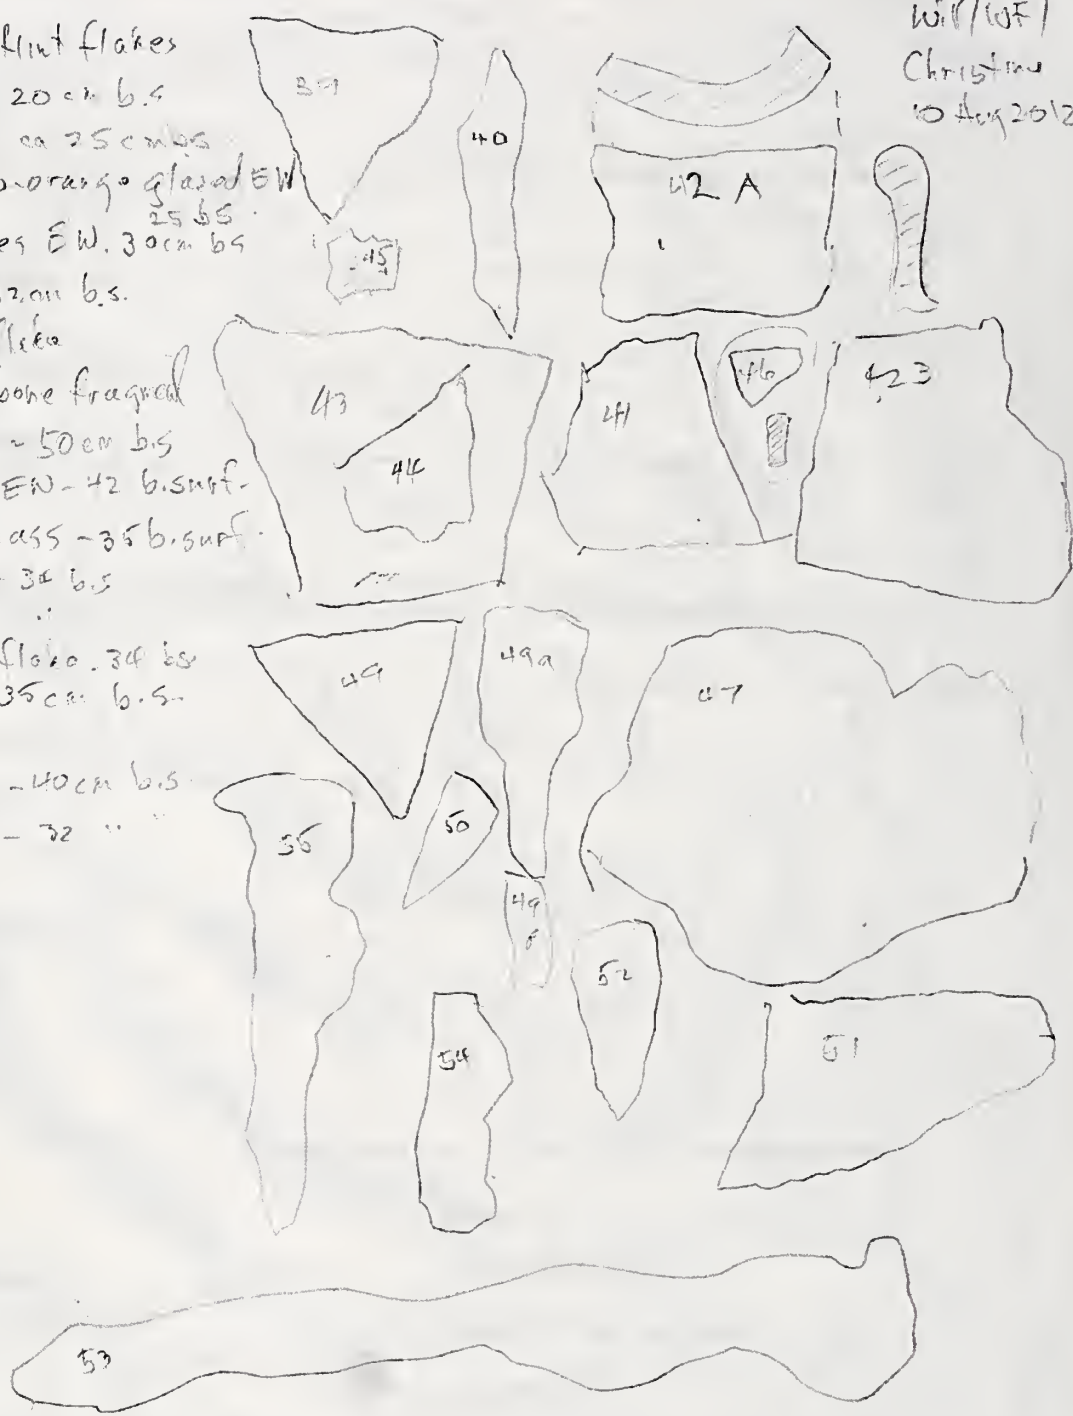 flint flakes
20 cm b.s
ca 25 cm bs
orange glazed EW
25 bs
EW. 30cm bs
2cm b.s.
flake
bone fragment
~ 50 cm b.s
EW - 42 b.surf.
ass - 35 b.surf.
34 b.s
"
flake . 34 bs
35 cm b.s.
- 40 cm b.s
- 32 " "
Christine
10 Aug 2012
39
40
42 A
45
43
44
41
46
423
49
49a
47
55
50
49
52
54
51
53